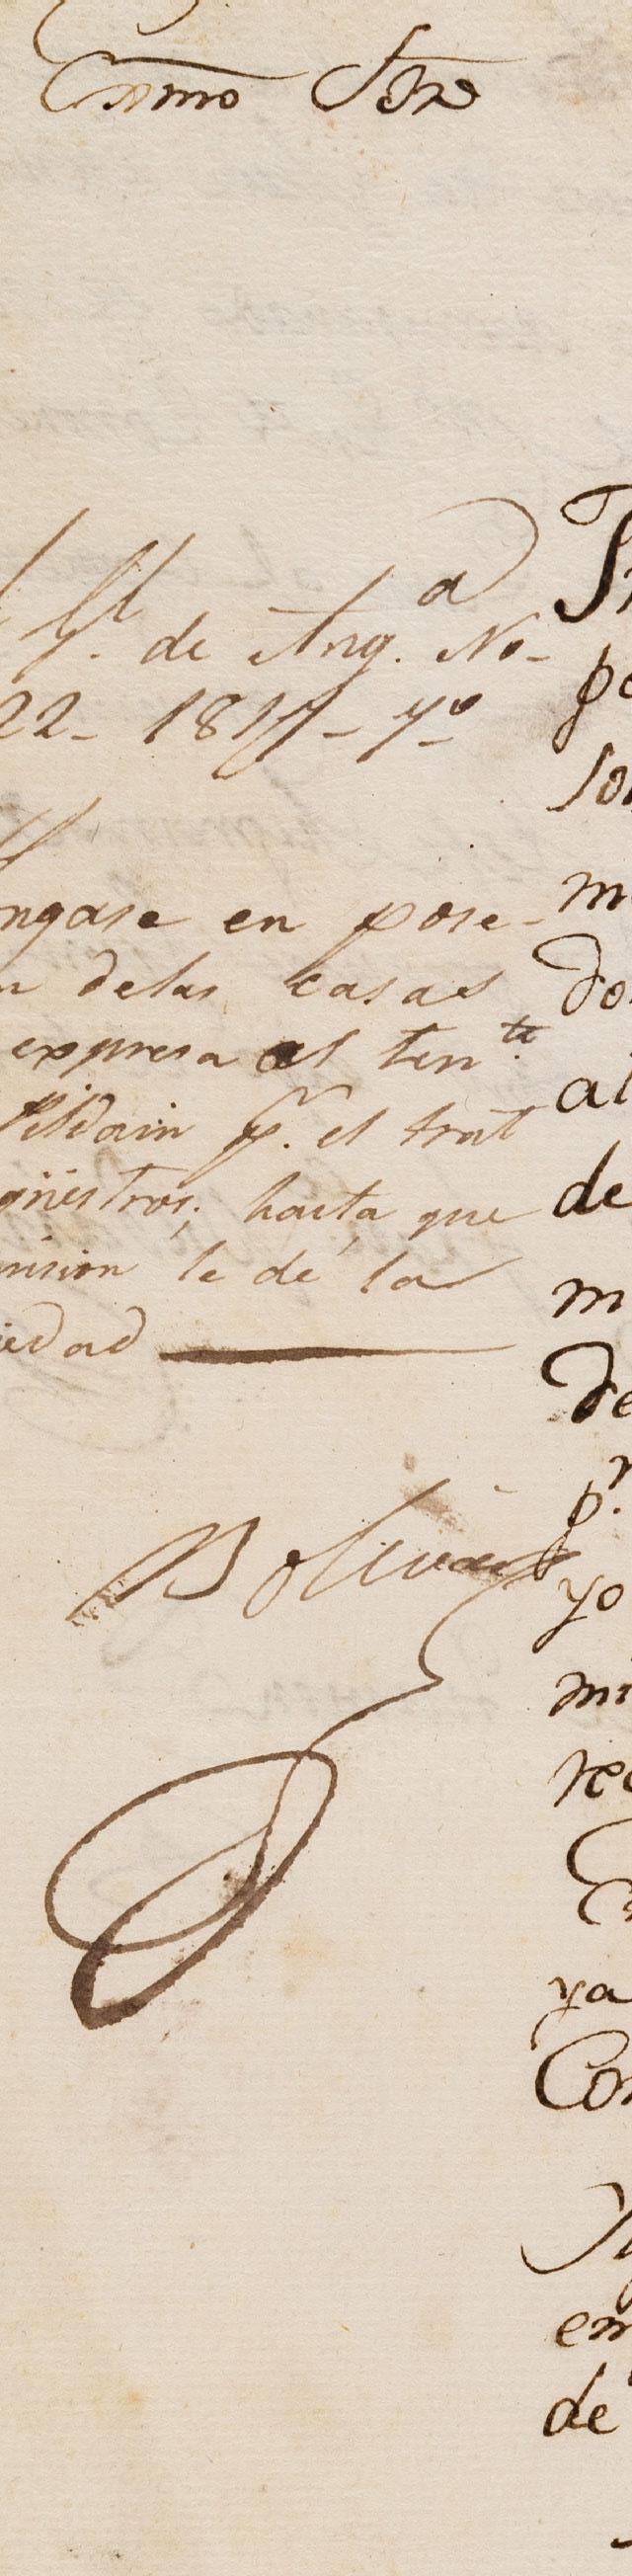 Exmo Sõr
Gl. de Ang.a No-
22- 1817- 7º
ngase en pose-
n delas casas
expresa al ten.te
Pildain pr. el trat
güestros; hasta que
mision le dé la
iedad
Bolivar
po
son
m
do
al
de
m
de
pr.
yo
mi
rec
ya
Con
em
de